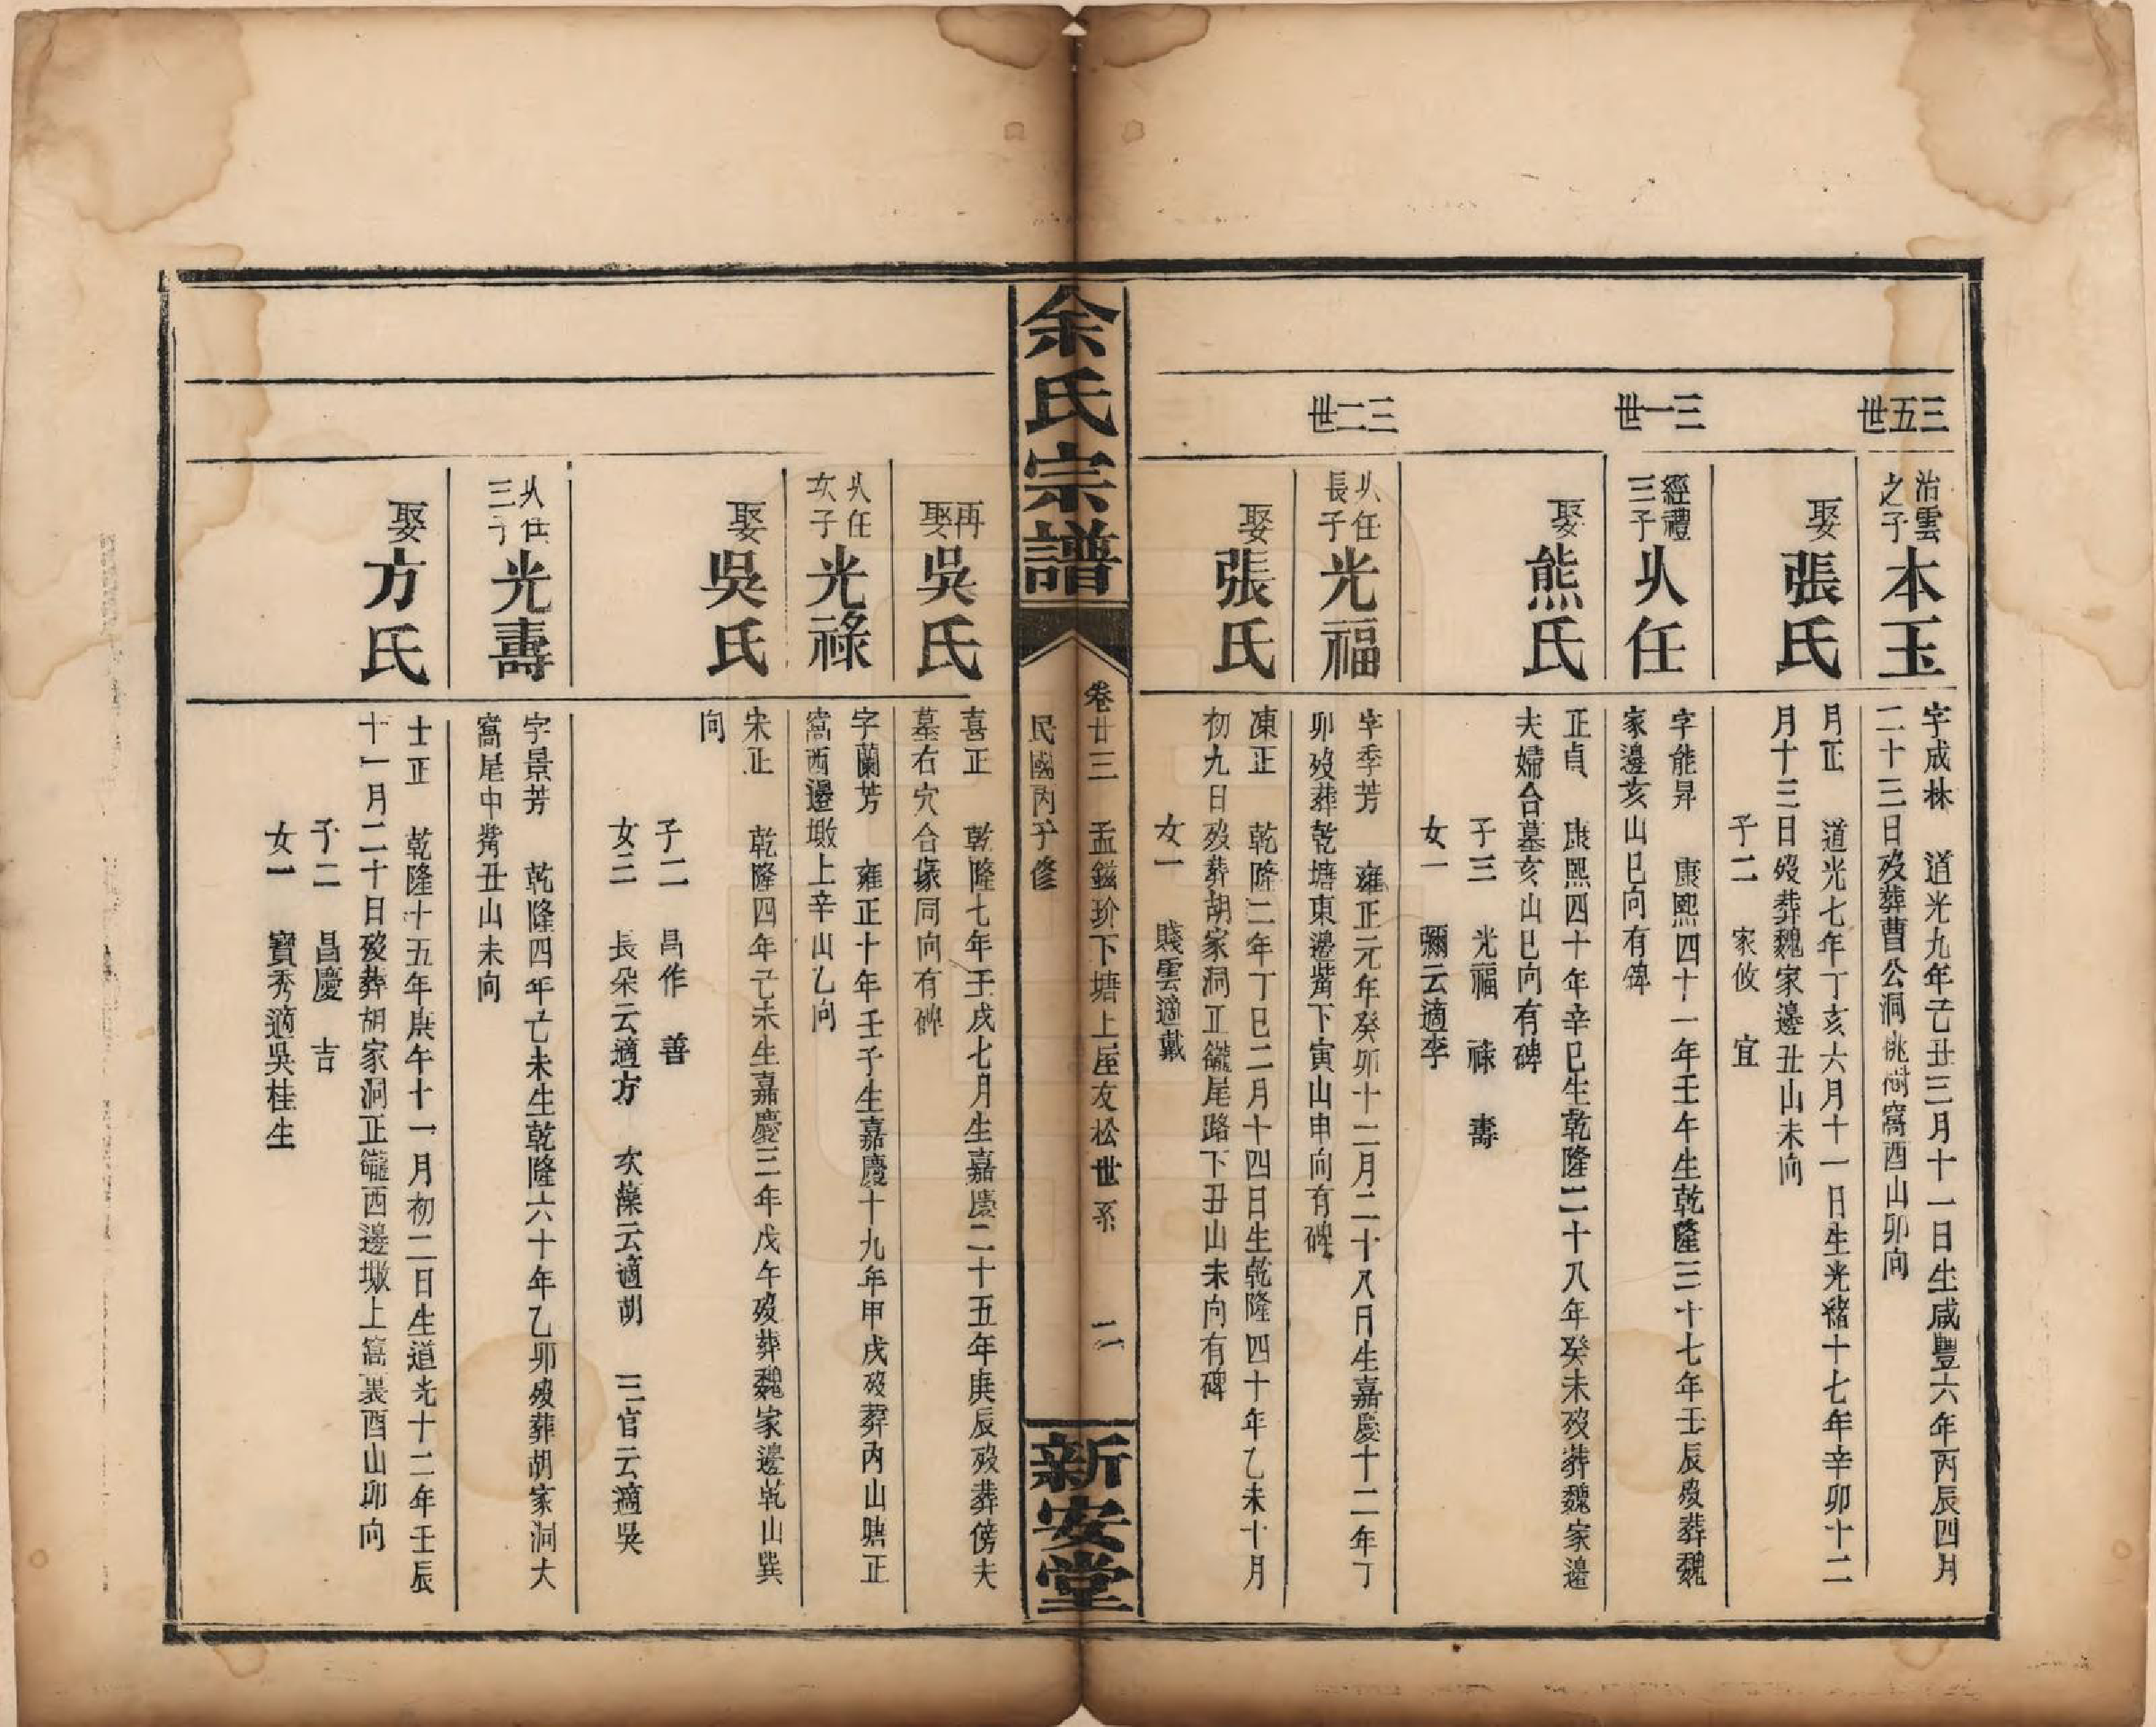 三五世
治雲
之子
本玉
字成林 道光九年己丑三月十一日生咸豐六年丙辰四月
二十三日歿葬曹公洞桃樹窩酉山卯向
娶張氏
月正 道光七年丁亥六月十一日生光緒十七年辛卯十二
月十三日歿葬魏家邊丑山未向
子二 家攸 宜
三一世
經禮
三子
乆任
字能昇 康熙四十一年壬午生乾隆三十七年壬辰歿葬魏
家邊亥山巳向有碑
娶熊氏
正貞 康熙四十年辛巳生乾隆二十八年癸未歿葬魏家邊
夫婦合墓亥山巳向有碑
子三 光福 祿 壽
女一 彌云適李
三二世
乆任
長子
光福
字季芳 雍正元年癸卯十二月二十八日生嘉慶十二年丁
卯歿葬乾塘東邊嘴下寅山申向有碑
娶張氏
凍正 乾隆二年丁巳二月十四日生乾隆四十年乙未十月
初九日歿葬胡家洞正龍尾路下丑山未向有碑
女一 賤雲適戴
余氏宗譜
卷廿三 孟鎡玠下塘上屋友松世系 二
民國丙子修
新安堂
再娶吳氏
喜正 乾隆七年壬戌七月生嘉慶二十五年庚辰歿葬傍夫
墓右穴合塚同向有碑
乆任
次子
光祿
字蘭芳 雍正十年壬子生嘉慶十九年甲戌歿葬內山塘正
窩西邊墩上辛山乙向
娶吳氏
宋正 乾隆四年己未生嘉慶三年戊午歿葬魏家邊乾山巽
向
子二 昌作 善
女三 長朶云適方 次藻云適胡 三官云適吳
乆任
三子
光壽
字景芳 乾隆四年己未生乾隆六十年乙卯歿葬胡家洞大
窩尾中嘴丑山未向
娶方氏
士正 乾隆十五年庚午十一月初二日生道光十二年壬辰
十一月二十日歿葬胡家洞正龍西邊墩上窩裏酉山卯向
子二 昌慶 吉
女一 寶秀適吳桂生